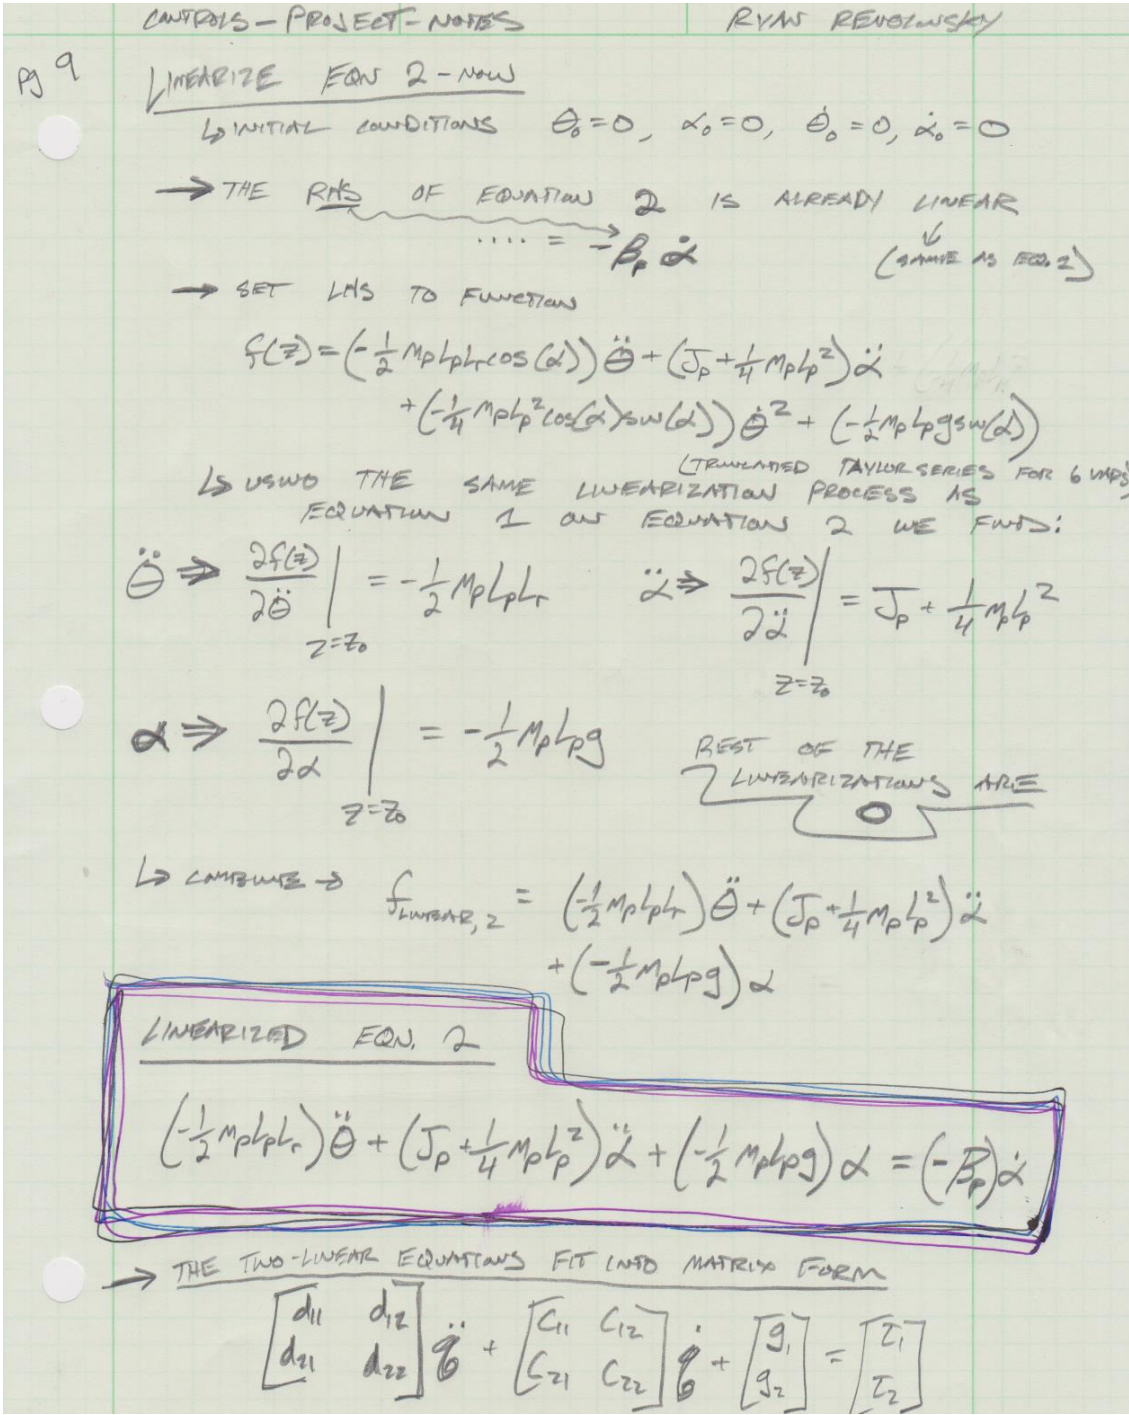 CONTROLS - PROJECT - NOTES RYAN REVOLINSKY
pg 9
LINEARIZE EQN 2 - NOW
↳ INITIAL CONDITIONS θ₀=0, α₀=0, θ̇₀=0, α̇₀=0
→ THE RHS OF EQUATION 2 IS ALREADY LINEAR
.... = -βₚ α̇ (SAME AS EQ. 2)
→ SET LHS TO FUNCTION
f(z) = (-1/2 MₚLₚLᵣcos(α))θ̈ + (Jₚ + 1/4 MₚLₚ²)α̈
+ (-1/4 MₚLₚ²cos(α)sin(α))θ̇² + (-1/2 MₚLₚg sin(α))
(TRUNCATED TAYLOR SERIES FOR 6 VARS)
↳ USING THE SAME LINEARIZATION PROCESS AS
EQUATION 1 ON EQUATION 2 WE FIND:
θ̈ ⇒ ∂f(z)/∂θ̈ |z=z₀ = -1/2 MₚLₚLᵣ α̈ ⇒ ∂f(z)/∂α̈ |z=z₀ = Jₚ + 1/4 MₚLₚ²
α ⇒ ∂f(z)/∂α |z=z₀ = -1/2 MₚLₚg
REST OF THE
LINEARIZATIONS ARE
0
↳ COMBINE → f LINEAR, 2 = (-1/2 MₚLₚLᵣ)θ̈ + (Jₚ + 1/4 MₚLₚ²)α̈
+ (-1/2 MₚLₚg)α
LINEARIZED EQN. 2
(-1/2 MₚLₚLᵣ)θ̈ + (Jₚ + 1/4 MₚLₚ²)α̈ + (-1/2 MₚLₚg)α = (-βₚ)α̇
→ THE TWO-LINEAR EQUATIONS FIT INTO MATRIX FORM
[d₁₁ d₁₂; d₂₁ d₂₂] q̈ + [C₁₁ C₁₂; C₂₁ C₂₂] q̇ + [g₁; g₂] = [τ₁; τ₂]